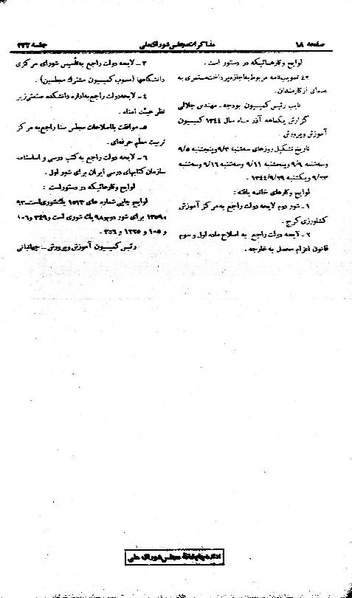 صفحه ۱۸
مذاکرات مجلس شورای ملی
جلسه ۲۲۲
لوایح و کارهائیکه در دستور است .
۲ـ تصویب‌نامه مربوط به اجازه پرداخت مستمری به
عده‌ای از کارمندان .
نایب رئیس کمیسیون بودجه ـ مهندس جلالی
گزارش یکماهه آذر ماه سال ۱۳۴۴ کمیسیون
آموزش و پرورش .
تاریخ تشکیل روزهای سه‌شنبه ۹/۲ و پنجشنبه ۹/۵
و سه‌شنبه ۹/۹ و پنجشنبه ۹/۱۱ و سه‌شنبه ۹/۱۶ و سه‌شنبه
۹/۲۳ و یکشنبه ۱۳۴۴/۹/۲۹
لوایح و کارهای خاتمه یافته :
۱ـ شور دوم لایحه دولت راجع به مرکز آموزش
کشاورزی کرج .
۲ـ لایحه دولت راجع به اصلاح ماده اول و سوم
قانون اعزام محصل به خارجه .
۳ـ لایحه دولت راجع به تأسیس شورای مرکزی
دانشگاهها (مصوب کمیسیون مشترک مجلسین) .
۴ـ لایحه دولت راجع به اداره دانشکده صنعتی زیر
نظر هیئت امناء .
۵ـ موافقت با اصلاحات مجلس سنا راجع به مرکز
تربیت معلم حرفه‌ای .
۶ـ لایحه دولت راجع به کتب درسی و اساسنامه
سازمان کتابهای درسی ایران برای شور اول .
لوایح و کارهائیکه در دستور است :
لوایح چاپی شماره های
برای شور دوم
رئیس کمیسیون آموزش و پرورش ـ جهانبانی
اداره چاپخانه مجلس شورای ملی